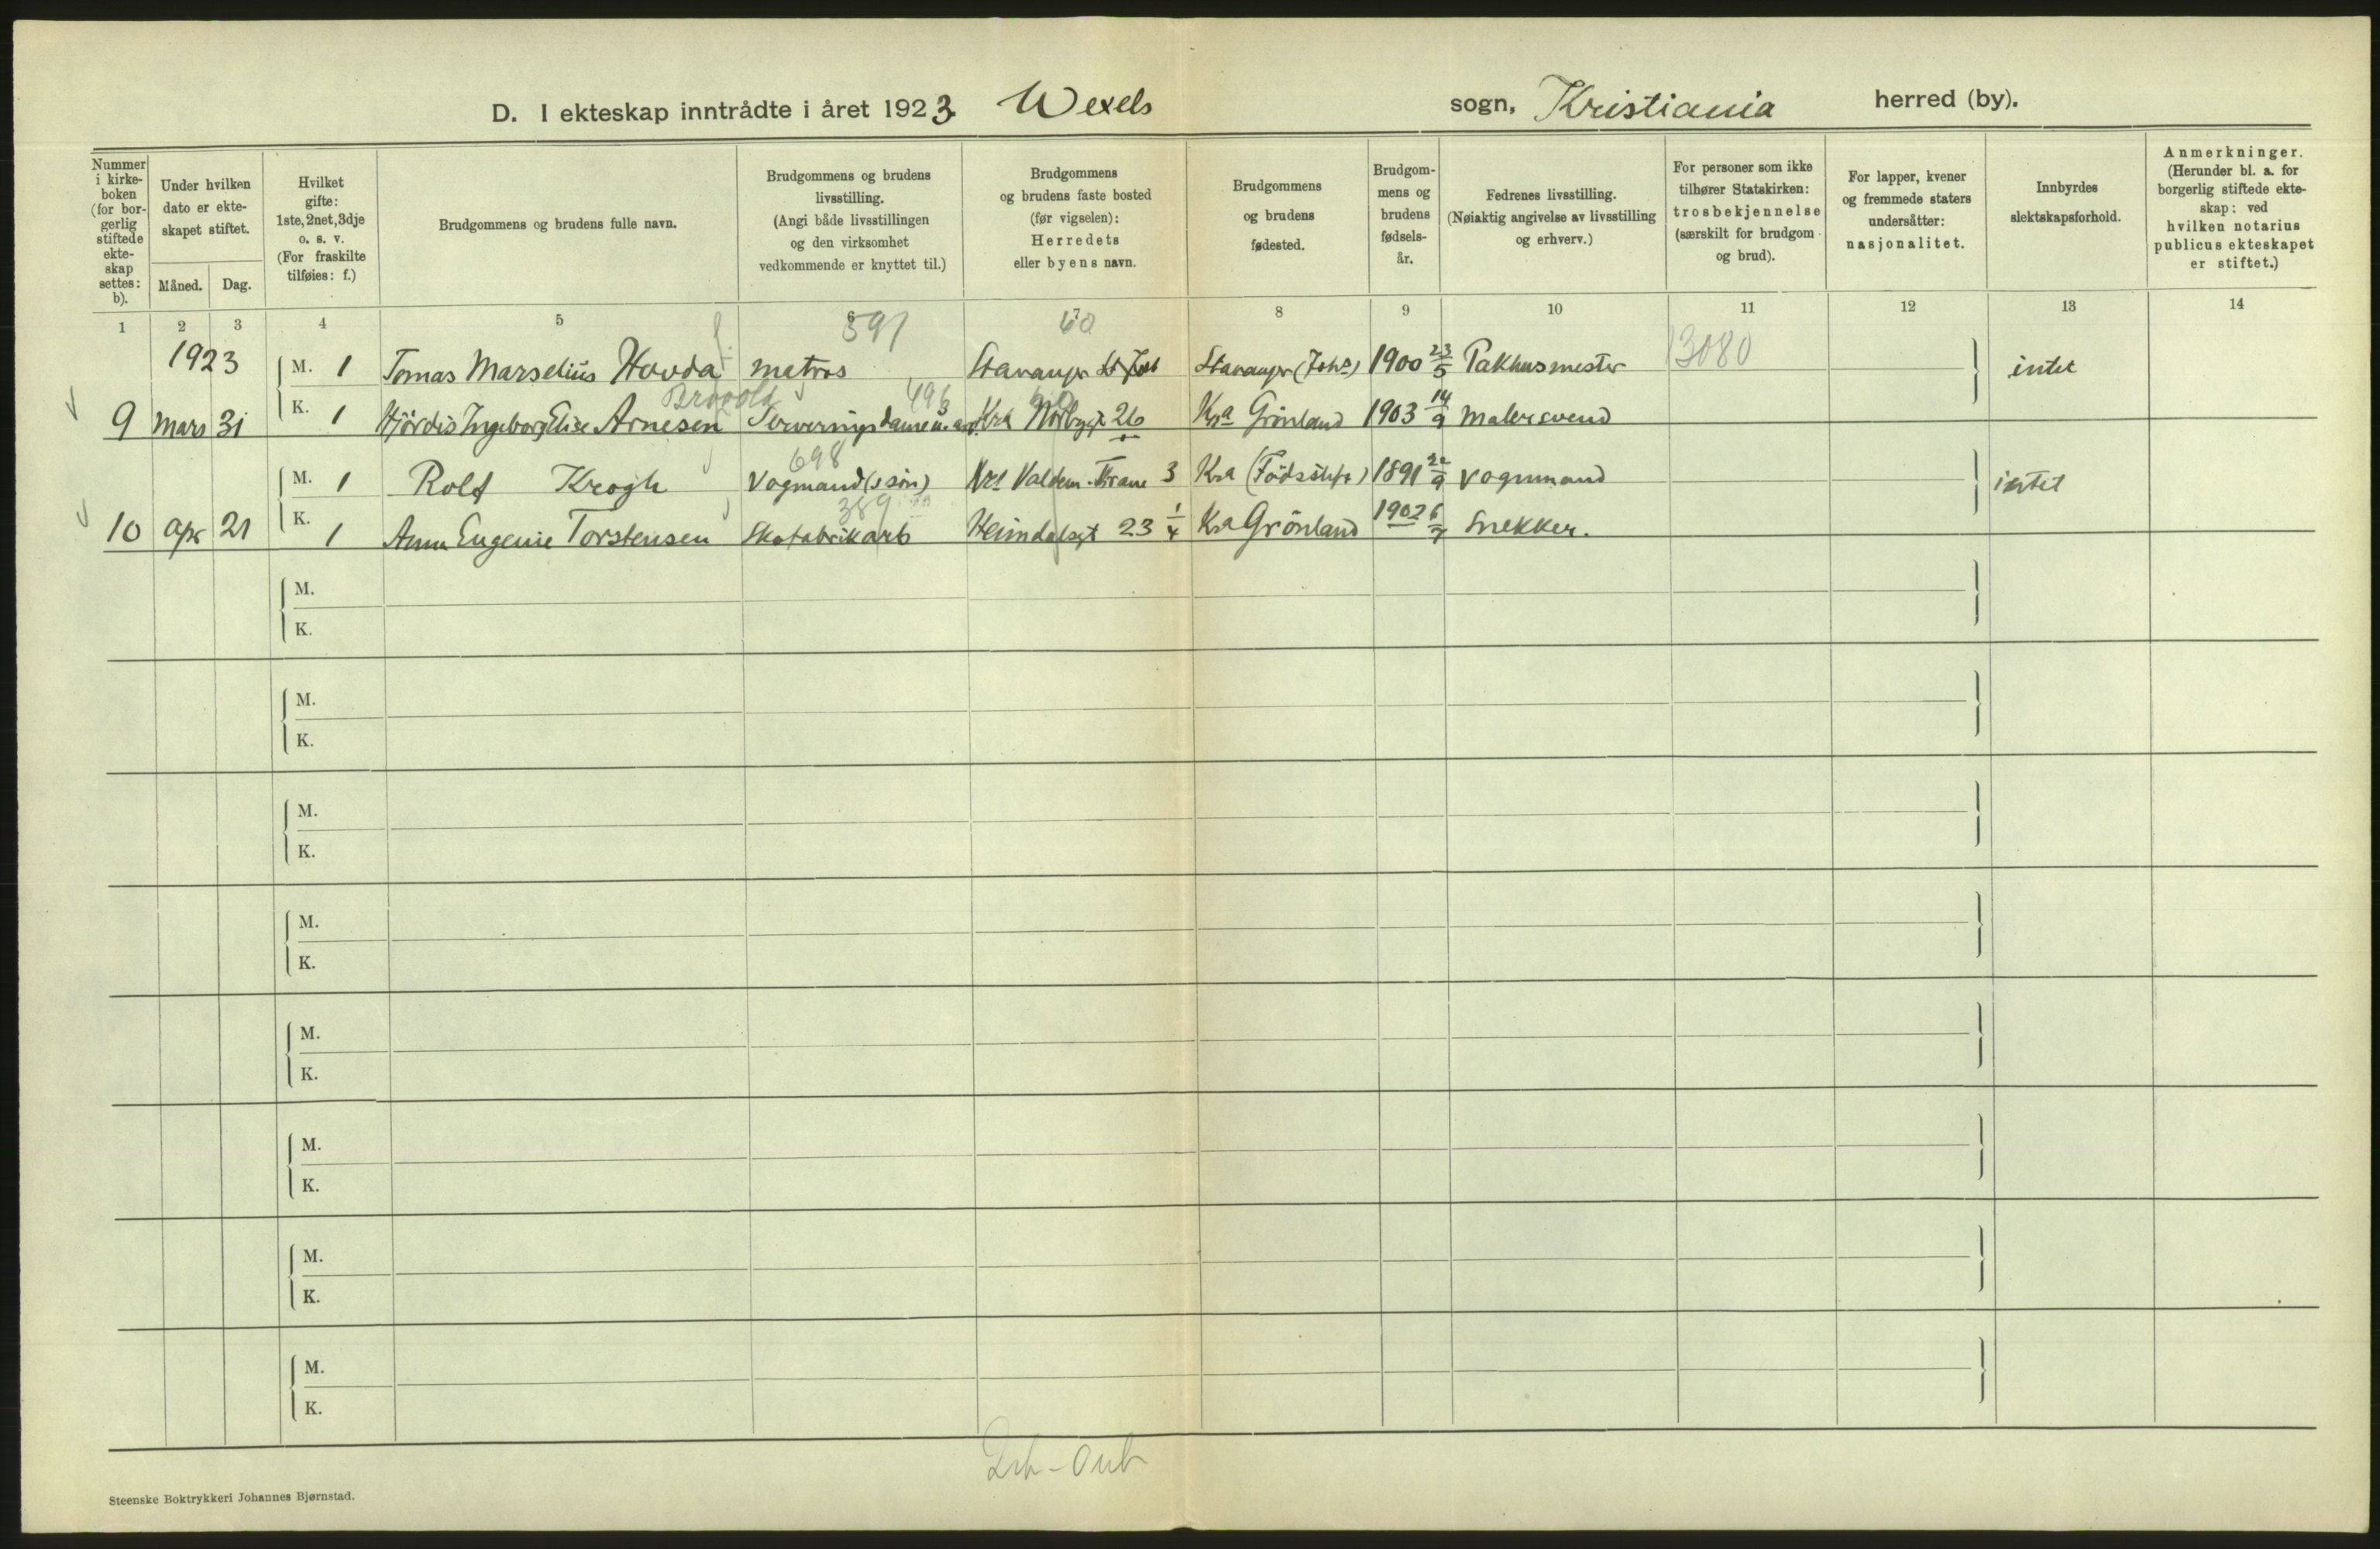 D. I ekteskap inntrådte i året 1923. Wexels sogn, Kristiania herred (by).
Nummer i kirkeboken (for borgerlig stiftede ekteskap settes: b).
Under hvilken dato er ekteskapet stiftet.
Måned. Dag.
Hvilket gifte: 1ste, 2net, 3dje o. s. v. (For fraskilte tilføies: f.)
Brudgommens og brudens fulle navn.
Brudgommens og brudens livsstilling. (Angi både livsstillingen og den virksomhet vedkommende er knyttet til.)
Brudgommens og brudens faste bosted (før vigselen): Herredets eller byens navn.
Brudgommens og brudens fødested.
Brudgommens og brudens fødselsår.
Fedrenes livsstilling. (Nøiaktig angivelse av livsstilling og erhverv.)
For personer som ikke tilhører Statskirken: trosbekjennelse (særskilt for brudgom og brud).
For lapper, kvener og fremmede staters undersåtter: nasjonalitet.
Innbyrdes slektskapsforhold.
Anmerkninger. (Herunder bl. a. for borgerlig stiftede ekteskap: ved hvilken notarius publicus ekteskapet er stiftet.)
1 2 3 4 5 6 7 8 9 10 11 12 13 14
591 60
1923 M. 1 Tomas Marselius Hovda matros Stavanger Stavanger (Joh s) 1900 23/5 Pakhusmester 13080 intet
496
9 Mars 31 K. 1 Hjördis Ingeborg Elise Arnesen Serveringsdame Kra 26 Kra Grönland 1903 14/9 Malersvend
698
M. 1 Rolf Krogh Vogmand (s søn) Valdem. Trane 3 Kra (Födsstift) 1891 /9 Vognmand intet
389
10 Apr 21 K. 1 Anna Eugenie Torstensen Skofabrikarb Heimdalsgt 23 1/4 Kra Grönland 1902 6/7 Snekker.
M.
K.
M.
K.
M.
K.
M.
K.
M.
K.
M.
K.
M.
K.
M.
K.
Steenske Boktrykkeri Johannes Bjørnstad.